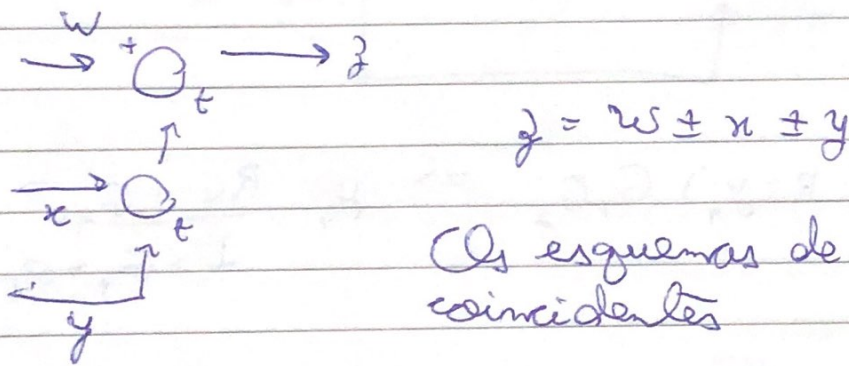 w
+
z
t
z = w ± x ± y
x
t
Os esquemas de
coincidentes
y